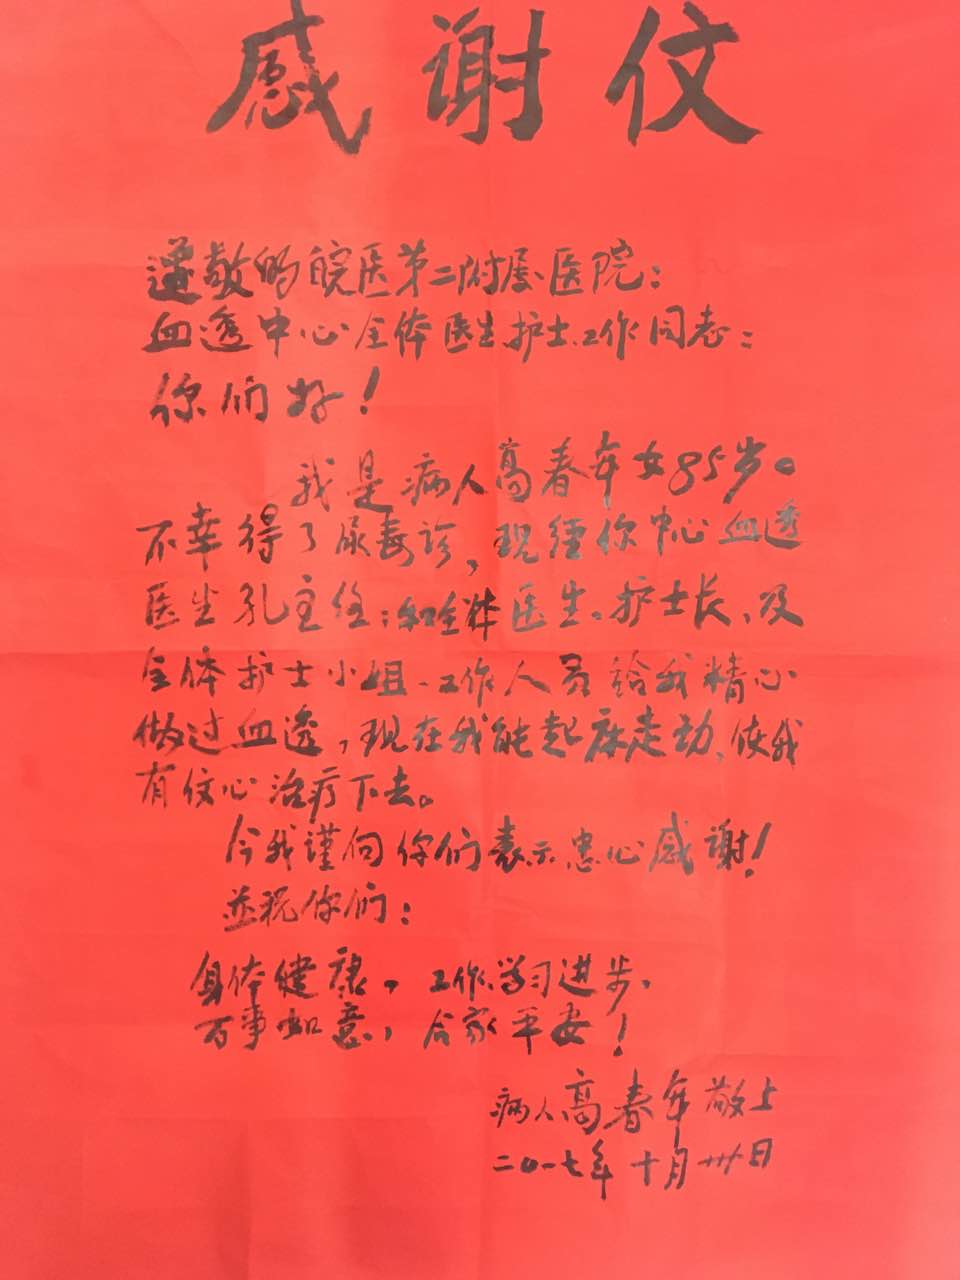 感谢伩
尊敬的皖医第二附属医院：
血透中心全体医生护士、工作同志：
你们好！
我是病人高春年女85岁。
不幸得了尿毒诊，现经你中心血透
医生孔主任：和全体医生、护士长、及
全体护士小姐、工作人员给我精心
做过血透，现在我能起床走动，使我
有伩心治疗下去。
今我谨向你们表示忠心感谢！
并祝你们：
身体健康，工作、学习进步、
万事如意，合家平安！
病人高春年敬上
二〇一七年十月卅日